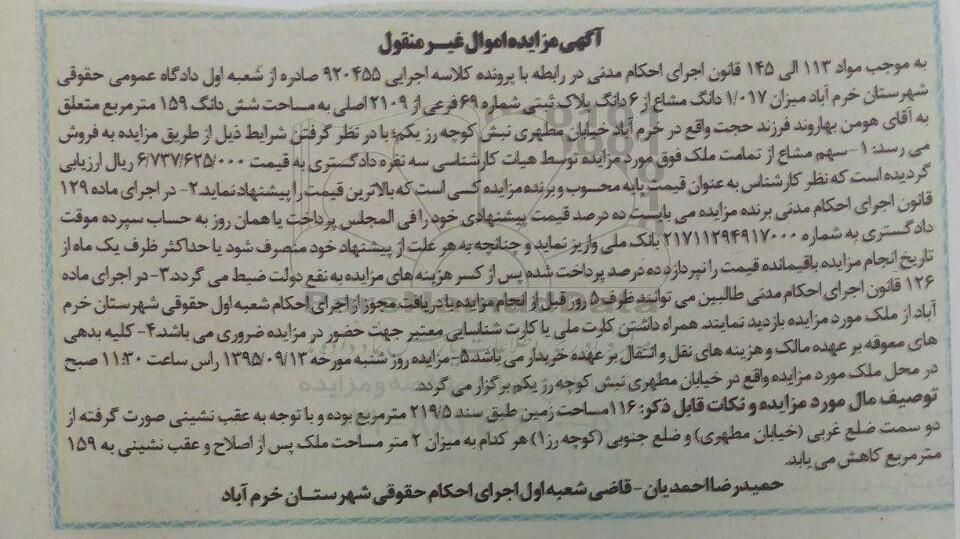 آگهی مزایده اموال غیر منقول
به موجب مواد ۱۱۳ الی ۱۴۵ قانون اجرای احکام مدنی در رابطه با پرونده کلاسه اجرایی ۹۲۰۴۵۵ صادره از شعبه اول دادگاه عمومی حقوقی
شهرستان خرم آباد میزان ۱/۰۱۷ دانگ مشاع از ۶ دانگ پلاک ثبتی شماره ۶۹ فرعی از ۲۱۰۹ اصلی به مساحت شش دانگ ۱۵۹ مترمربع متعلق
به آقای هومن بهاروند فرزند حجت واقع در خرم آباد خیابان مطهری نبش کوچه رز یکم؛ با در نظر گرفتن شرایط ذیل از طریق مزایده به فروش
می رسد: ۱- سهم مشاع از تمامت ملک فوق مورد مزایده توسط هیات کارشناسی سه نفره دادگستری به قیمت ۶/۷۳۷/۶۲۵/۰۰۰ ریال ارزیابی
گردیده است که نظر کارشناس به عنوان قیمت پایه محسوب و برنده مزایده کسی است که بالاترین قیمت را پیشنهاد نماید ۲- در اجرای ماده ۱۲۹
قانون اجرای احکام مدنی برنده مزایده می بایست ده درصد قیمت پیشنهادی خود را فی المجلس پرداخت یا همان روز به حساب سپرده موقت
دادگستری به شماره ۲۱۷۱۱۲۹۴۹۱۷۰۰۰ بانک ملی واریز نماید و چنانچه به هر علت از پیشنهاد خود منصرف شود یا حداکثر ظرف یک ماه از
تاریخ انجام مزایده باقیمانده قیمت را نپردازد ده درصد پرداخت شده پس از کسر هزینه های مزایده به نفع دولت ضبط می گردد. ۳- در اجرای ماده
۱۲۶ قانون اجرای احکام مدنی طالبین می توانند ظرف ۵ روز قبل از انجام مزایده با دریافت مجوز از اجرای احکام شعبه اول حقوقی شهرستان خرم
آباد از ملک مورد مزایده بازدید نمایند. همراه داشتن کارت ملی یا کارت شناسایی معتبر جهت حضور در مزایده ضروری می باشد. ۴- کلیه بدهی
های معوقه بر عهده مالک و هزینه های نقل و انتقال بر عهده خریدار می باشد. ۵- مزایده روز شنبه مورخه ۱۳۹۵/۰۹/۱۳ راس ساعت ۱۱:۳۰ صبح
در محل ملک مورد مزایده واقع در خیابان مطهری نبش کوچه رز یکم برگزار می گردد.
توصیف مال مورد مزایده و نکات قابل ذکر: ۱۱۶ مساحت زمین طبق سند ۲۱۹/۵ مترمربع بوده و با توجه به عقب نشینی صورت گرفته از
دو سمت ضلع غربی (خیابان مطهری) و ضلع جنوبی (کوچه رز۱) هر کدام به میزان ۲ متر مساحت ملک پس از اصلاح و عقب نشینی به ۱۵۹
مترمربع کاهش می یابد.
حمیدرضا احمدیان - قاضی شعبه اول اجرای احکام حقوقی شهرستان خرم آباد